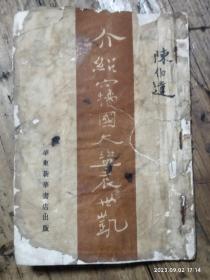 陳伯達
介紹竊國大盜袁世凱
華東新華書店出版
2023.09.02 17:14